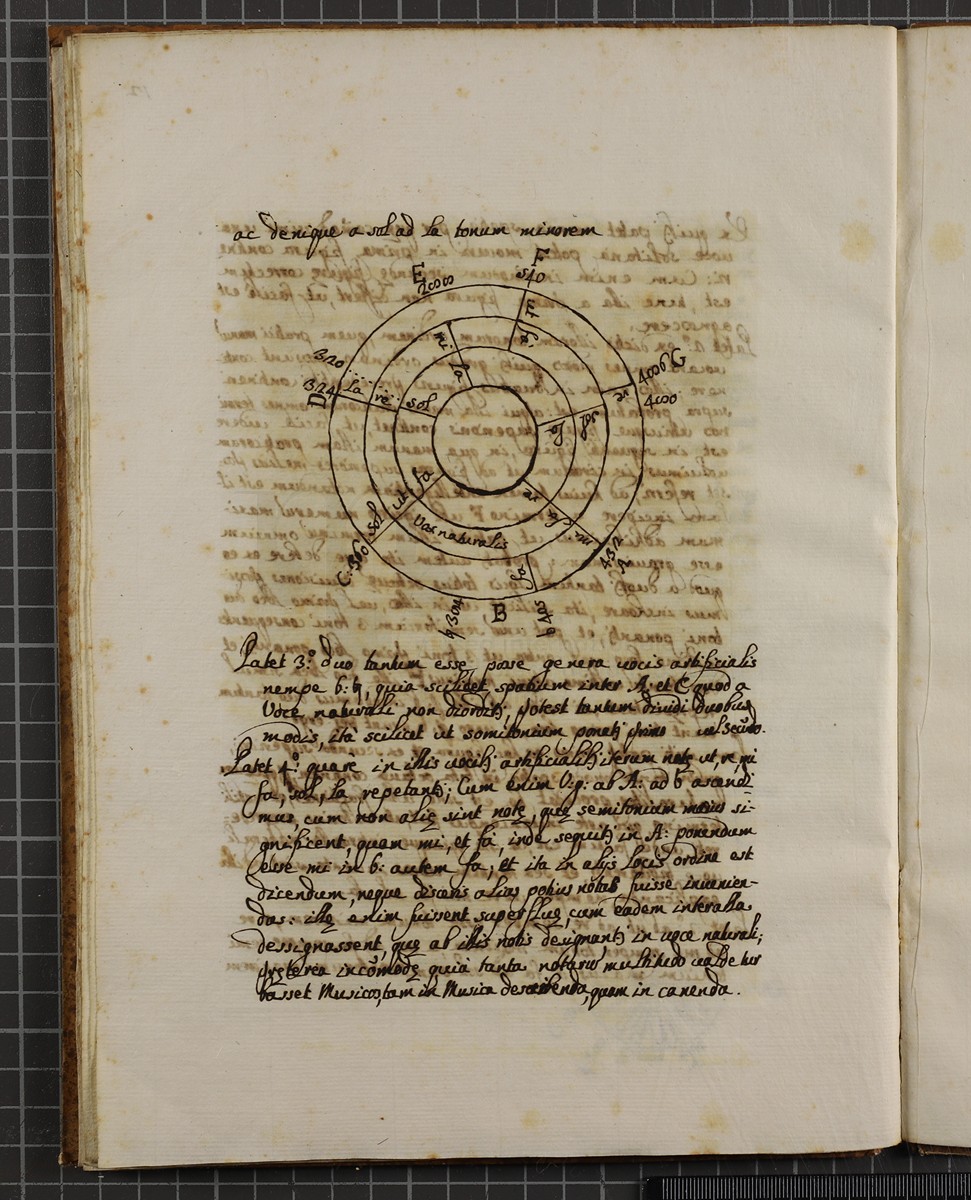 ac denique a sol ad la tonum minorem
E
F
540
mi
la
ut
fa
320
324
D
la
re
sol
G
re
sol
fa
ut
fa
sol
C: 360
Vox naturalis
mi
432
A
fa
B
♮ 304
b 405
Patet 3.º duo tantum esse posse genera vocis artificialis
nempe b: ♮, quia scilicet spatium inter A: et C quod a
voce naturali non potest tantum dividi duobus
modis, ita scilicet ut semitonium ponatur primo vel scundo.
Patet 4.º quare in illis vocibus artificialibus iterum notę ut, re, mi
fa, sol, la repetantur; Cum enim V: g: ab A: ad b ascendi-
mus, cum non alię sint notę, quę semitonium maius si-
gnificent, quam mi, et fa, inde sequitur in A: ponendum
esse mi in b: autem fa; et ita in alijs locis ordine est
dicendum, neque dicas alias potius notas fuisse invenien-
das: illę enim fuissent superfluę, cum eadem intervalla
dessignassent, quę ab illis notis designantur in voce naturali;
pręterea incomodę, quia tanta notarum multitudo valde tur
basset Musicos, tam in Musica describenda, quam in canenda.